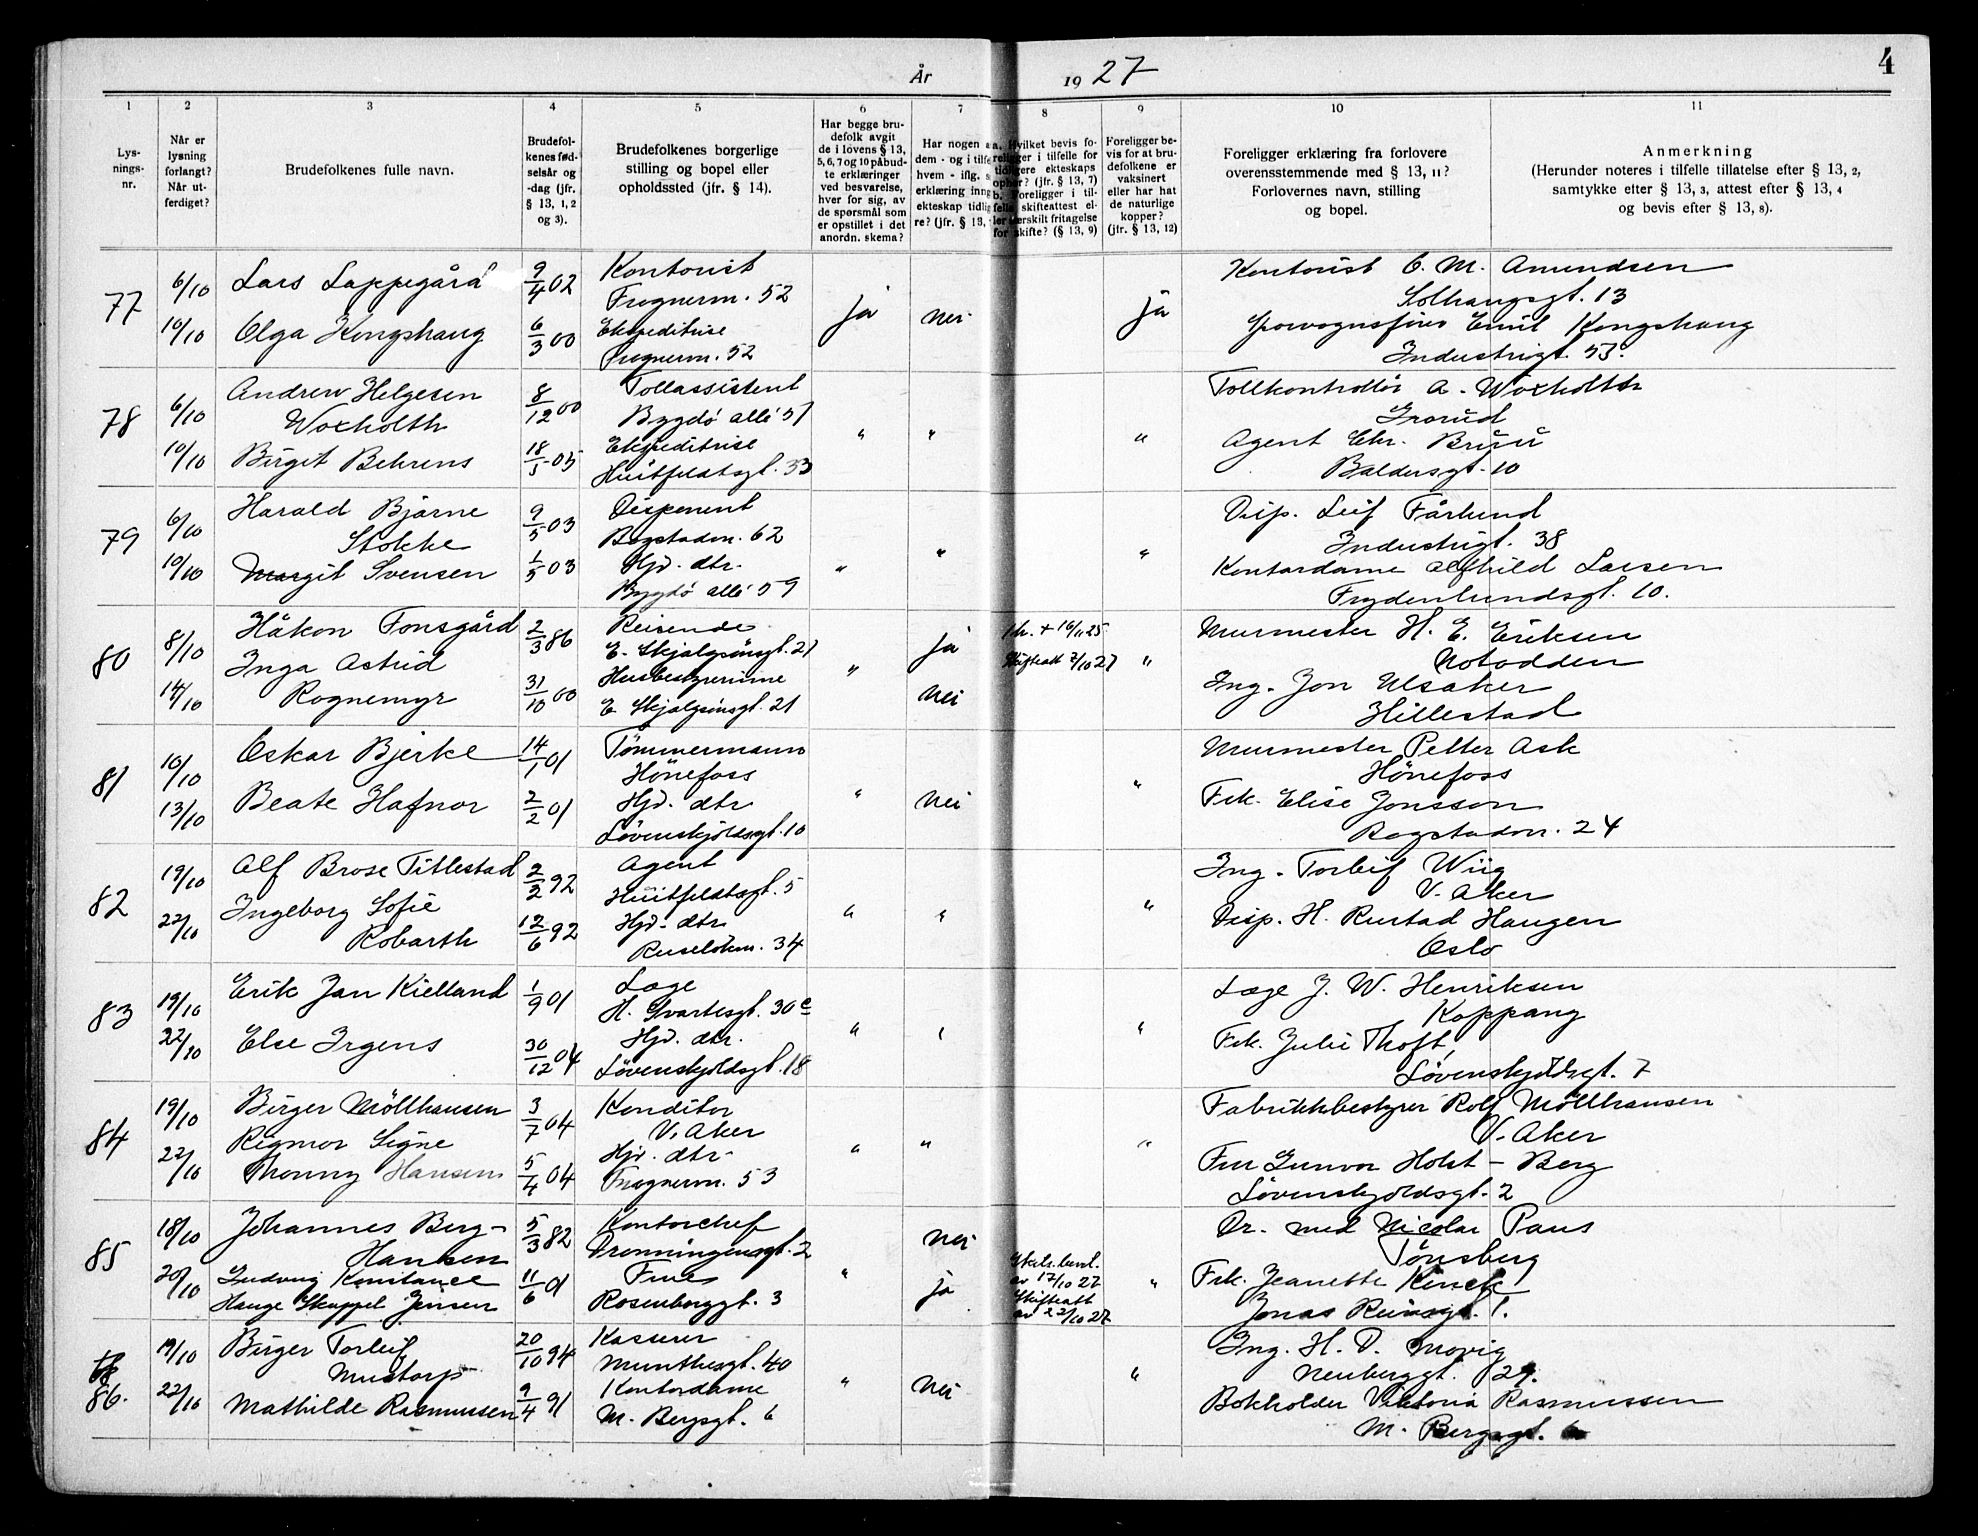 År 1927
4
1 2 3 4 5 6 7 8 9 10 11
Lys-
nings-
nr.
Når er
lysning
forlangt?
Når ut-
ferdiget?
Brudefolkenes fulle navn.
Brudefol-
kenes fød-
selsår og
-dag (jfr.
§ 13, 1, 2
og 3).
Brudefolkenes borgerlige
stilling og bopel eller
opholdssted (jfr. § 14).
Har begge bru-
defolk avgit
de i lovens § 13,
5, 6, 7 og 10 påbud-
te erklæringer
ved besvarelse,
hver for sig, av
de spørsmål som
er opstillet i det
anordn. skema?
Har nogen a
dem - og i tilfe
hvem - iflg.
erklæring inng
ekteskap tidlig
re? (jfr. § 13,
a. Hvilket bevis fo-
religger i tilfelle for
tidligere ekteskaps
ophør? (jfr. § 13, 7)
b. Foreligger i til-
felle skifteattest el-
ler særskilt fritagelse
for skifte? (§ 13, 9)
Foreligger be-
vis for at bru-
defolkene er
vaksinert
eller har hat
de naturlige
kopper?
(jfr. § 13, 12)
Foreligger erklæring fra forlovere
overensstemmende med § 13, 11?
Forlovernes navn, stilling
og bopel.
Anmerkning
(Herunder noteres i tilfelle tillatelse efter § 13, 2,
samtykke efter § 13, 3, attest efter § 13, 4
og bevis efter § 13, 8).
77 6/10 Lars Lappegård 9/4 02 Kontorist Kontorist C. M. Amundsen
Frognerm. 52 ja nei ja Solhaugsgt. 13
10/10 Olga Kongshaug 6/3 00 Ekspeditrise Emil Kongshaug
Frognerm. 52 Industrigt. 53.
78 6/10 Andrew Helgesen 8/12 00 Tollassistent Tollkontrollør A. Woxholth
Woxholth Bygdø allé 51 " " " Grorud
10/10 Birgit Behrens 18/1 05 Ekspeditrise Agent Chr. Bruu
Huitfeldtsgt. 33 Baldersgt. 10
79 6/10 Harald Bjarne 9/5 03 Disponent Disp. Leif Fårlund
Stokke Bogstadvn. 62 " " " Industrigt. 38
10/10 Margit Svensen 1/5 03 Hjd. dtr. Kontordame Alfhild Larsen
Bygdø allé 59 Frydenlundsgt. 10.
80 8/10 Håkon Fonsgård 2/3 86 Reisende ja + 16/11 25 Murmester H. E. Eriksen
Inga Astrid E. Skjalgsønsgt. 21 " Skifteatt 7/10 27 " Notodden
14/10 Rognemyr 31/10 00 Husbestyrerinne nei Ing. Jon Ulsaker
E. Skjalgsønsgt. 21 Hillestad
81 10/10 Oskar Bjerke 14/1 01 Tømmermann Murmester Petter Ask
Hönefoss " nei " Hönefoss
13/10 Beate Hafnor 2/2 01 Hjd. dtr Frk. Elise Jonsson
Løvenskjoldsgt. 10 Bogstadvn. 24
82 19/10 Alf Brose Titlestad 2/2 92 Agent Ing. Torleif Wiig
Ingeborg Sofie Huitfeldtsgt. 5 " " " V. Aker
22/10 Robarth 12/6 92 Hjd. dtr Disp. H. Rustad Haugen
Ruseløkvn. 34 Oslo
83 19/10 Erik Jan Kielland 1/9 01 Læge Læge J. W. Henriksen
H. Svartesgt. 30 c " " " Koppang
22/10 Else Irgens 30/12 04 Hjd. dtr. Frk. Julie Thoft,
Løvenskjoldsgt. 18 Løvenskjoldsgt. 7
84 19/10 Birger Möllhausen 3/7 04 Konditor Fabrikkbestyrer Rolf Möllhausen
Rigmor Signe V. Aker " " " V. Aker
22/10 Thonny Hansen 5/4 04 Hjd. dtr. Fru Gunvor Holst-Berg
Frognerm. 53 Løvenskjoldsgt. 2
85 18/10 Johannes Berg- 5/3 82 Kontorchef nei Dr. med Nicolai Paus
Hansen Dronningensgt. 2 Tønsberg
20/10 Ludvig Konstance 11/6 01 Frue " ja av 17/10 27 " Frk. Jeanette Kinck
Hauge Skappel Jensen Rosenborggt. 3 Skifteatt av 22/10 27 Jonas Reinsgt. 1.
86. 19/10 Birger Torleif 20/10 94 Kasserer Ing. H. D. Movig
Mustorp Munthesgt. 40 " nei " Neuberggt. 29.
22/10 Mathilde Rasmussen 9/4 91 Kontordame Bokholder Viktoria Rasmussen
M. Bergsgt. 6 M. Bergsgt. 6